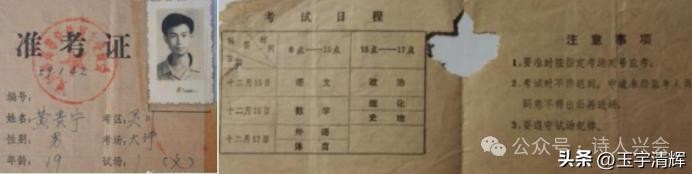 准考证
编号：
姓名：黄贵宁 考区：
性别：男 考场：大坪
年龄：19 试场：1（文）
考试日程
时间 8点——10点 15点——17点
十二月15日 语文 政治
十二月16日 数学 理化
史地
十二月17日 外语
体育
注意事项
1.要准时按指定考场对号应考。
2.考试时不得迟到，中途未经监考人员
同意不得出后再进场。
3.要遵守试场纪律。
公众号·诗人兴会
头条@玉宇清辉